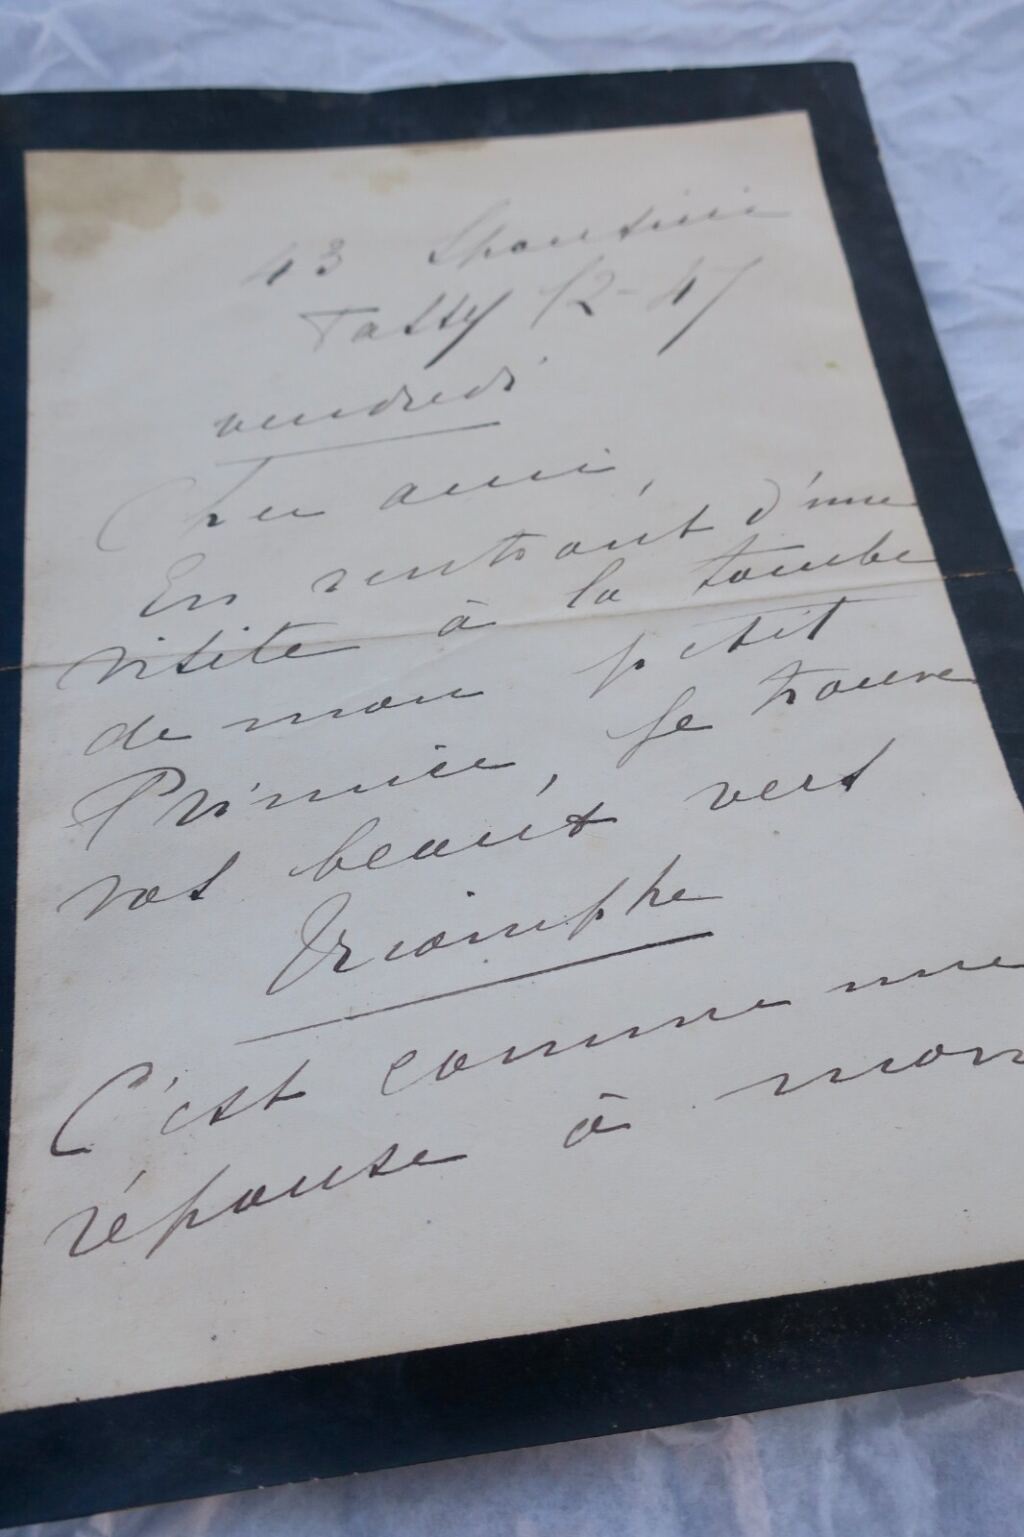 43
Passy 12-47
vendredi
Cher ami,
En rentrant d'une
visite à la tombe
de mon petit
je trouve
vos beaux vers
Triomphe
C'est comme une
réponse à mon